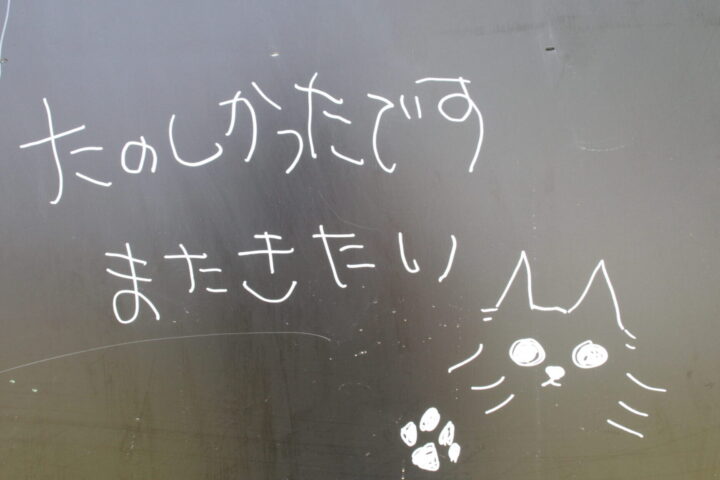 たのしかったです
またきたい